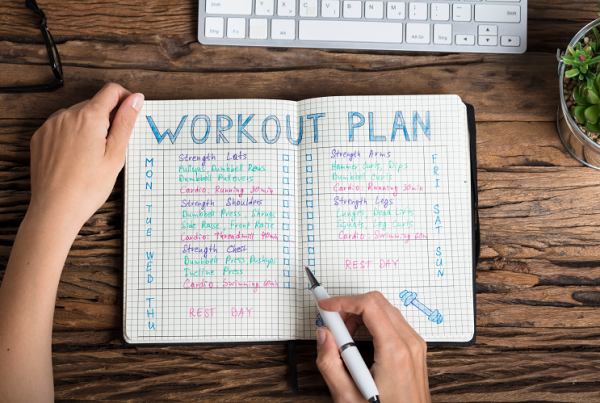 WORKOUT PLAN
MON
Strength Lats
Pullups, Dumbbell Rows
Dumbbell Pullovers
Cardio: Running 30min
TUE
Strength Shoulders
Dumbbell Press, Shrug,
Side Raise, Front Raise
Cardio: Threadmill
WED
Strength Chest
Dumbbell Press, Pushups
Incline Press
Cardio: Swimming
THU
REST DAY
FRI
Strength Arms
Hammer Curls, Dips
Dumbbell Curls
Cardio: Running
SAT
Strength Legs
Lunges, Dead Lifts
Squats, Leg Curls
Cardio: Swimming
SUN
REST DAY